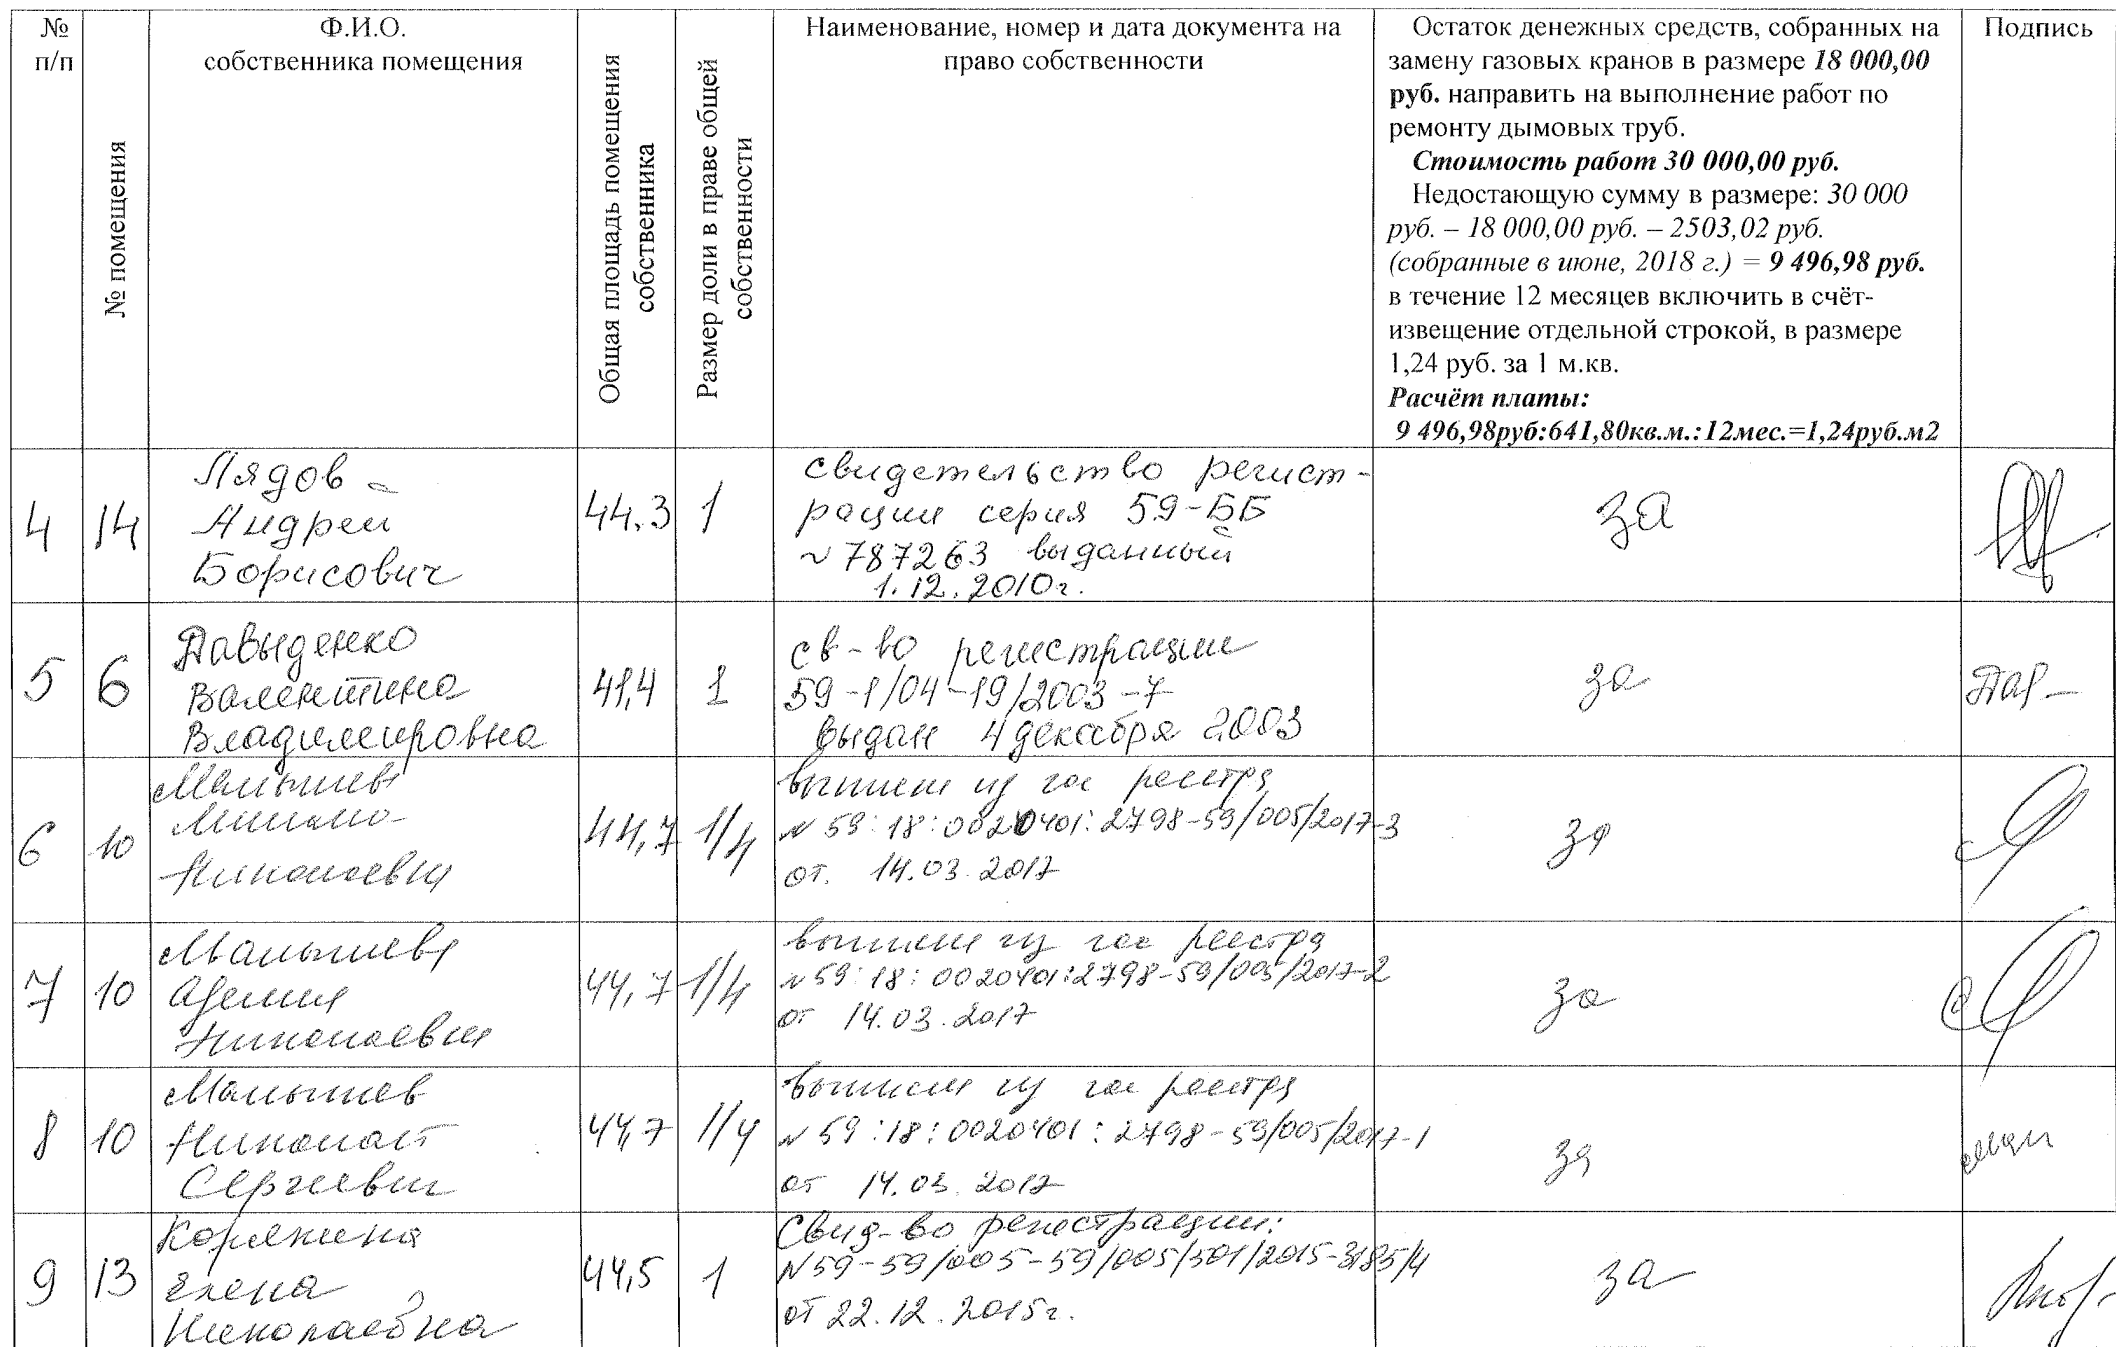 № п/п
№ помещения
Ф.И.О.
собственника помещения
Общая площадь помещения
собственника
Размер доли в праве общей
собственности
Наименование, номер и дата документа на
право собственности
Остаток денежных средств, собранных на
замену газовых кранов в размере 18 000,00
руб. направить на выполнение работ по
ремонту дымовых труб.
Стоимость работ 30 000,00 руб.
Недостающую сумму в размере: 30 000
руб. – 18 000,00 руб. – 2503,02 руб.
(собранные в июне, 2018 г.) = 9 496,98 руб.
в течение 12 месяцев включить в счёт-
извещение отдельной строкой, в размере
1,24 руб. за 1 м.кв.
Расчёт платы:
9 496,98руб:641,80кв.м.:12мес.=1,24руб.м2
Подпись
4
14
Лядов
Андрей
Борисович
44,3
1
свидетельство регист-
рации серия 59-ББ
№ 787263 выданный
1.12.2010г.
за
5
6
Давыденко
Валентина
Владимировна
41,4
1
св-во регистрации
59-1/04-19/2003-7
выдан 4 декабря 2003
за
6
10
Малышева
Николаевна
44,7
1/4
выписка из гос реестра
№ 59:18:0020401:2798-59/005/2017-3
от. 14.03.2017
за
7
10
Малышева
Аделия
Николаевна
44,7
1/4
выписка из гос реестра
№ 59:18:0020401:2798-59/005/2017-2
от 14.03.2017
за
8
10
Малышев
Николай
Сергеевич
44,7
1/4
выписка из гос реестра
№ 59:18:0020401:2798-59/005/2017-1
от 14.03.2017
за
9
13
Корякина
Елена
Николаевна
44,5
1
Свид-во регистрации:
№59-59/005-59/005/501/2015-3185/4
от 22.12.2015г.
за